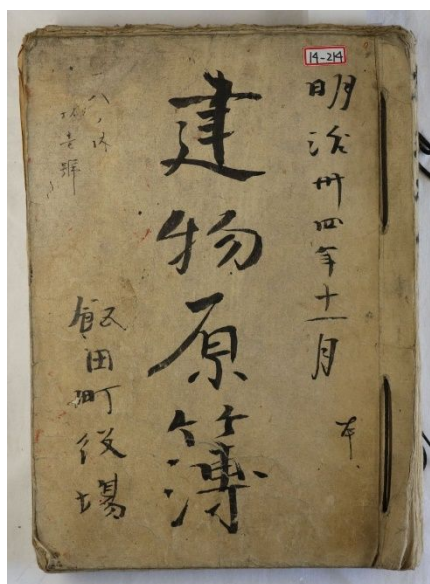 14-214
明治卅四年十一月
建物原簿
飯田町役場